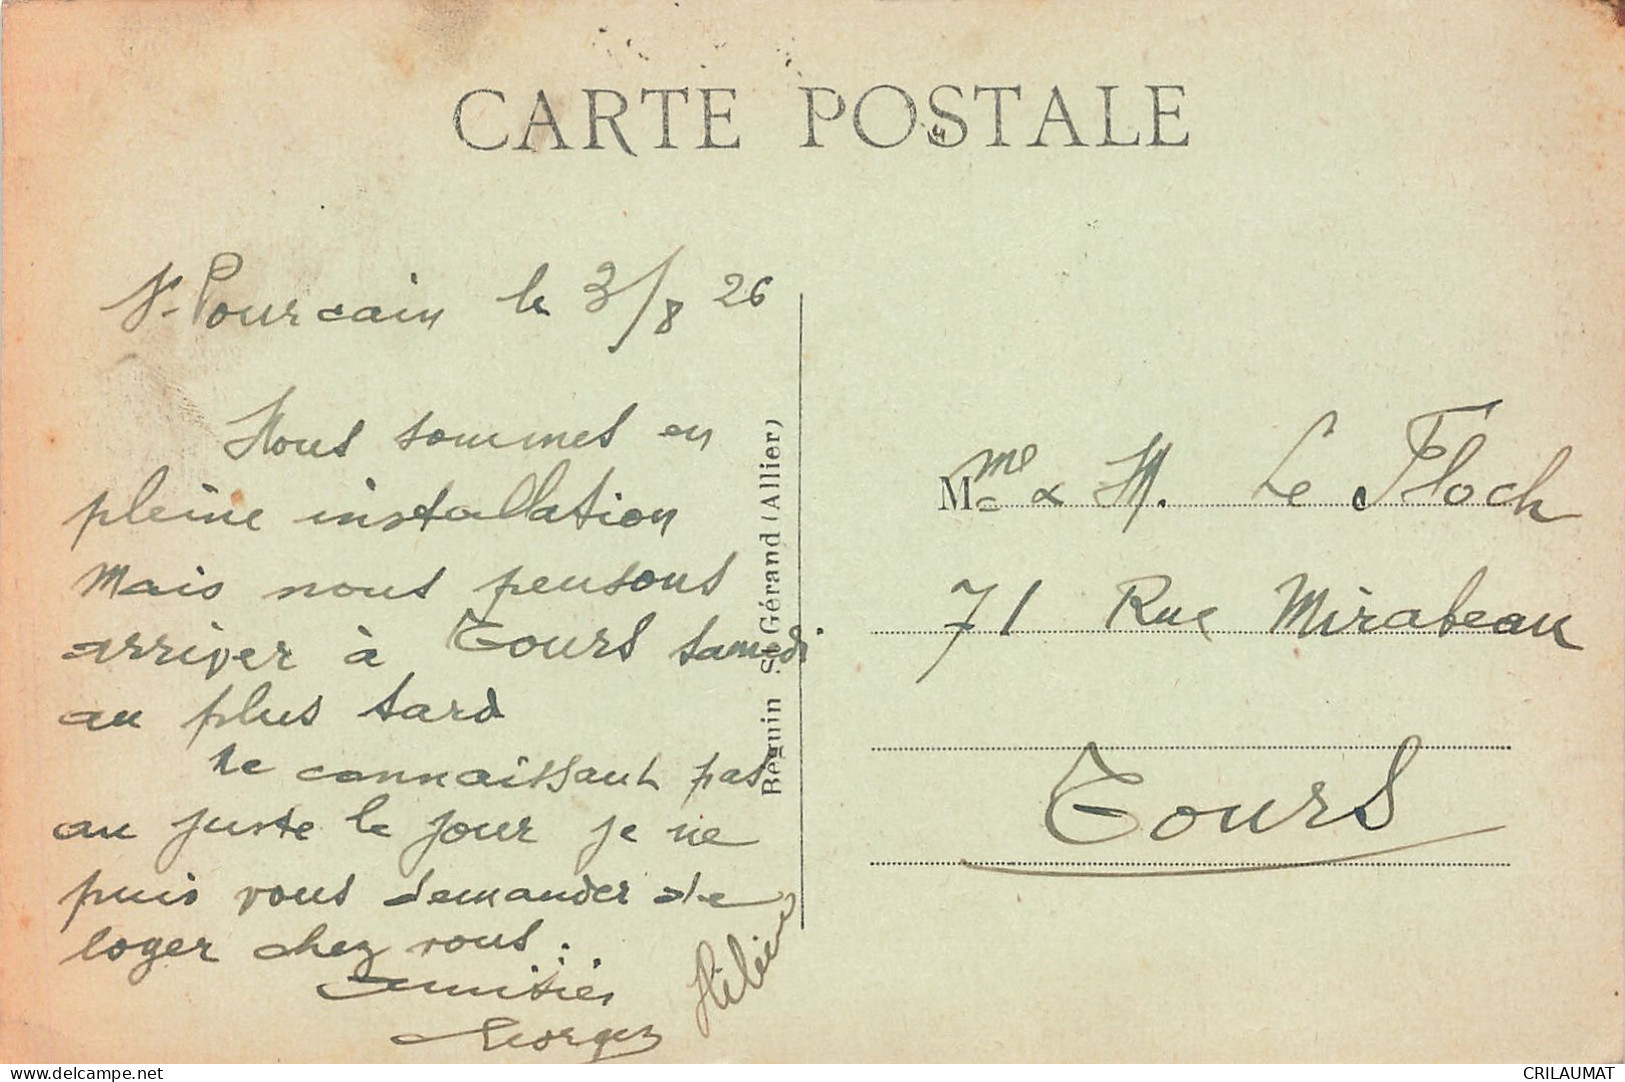 CARTE POSTALE
St-Pourcain le 3/8 26
Nous sommes en
pleine installation
Mais nous pensons
arriver à Tours samedi
au plus tard
Ne connaissant pas
au juste le jour je ne
puis vous demander de
loger chez vous.
Amitiés
Georges
Béguin St Gérand (Allier)
Mme & M. Le Floch
71 Rue Mirabeau
Tours
delcampe.net
CRILAUMAT